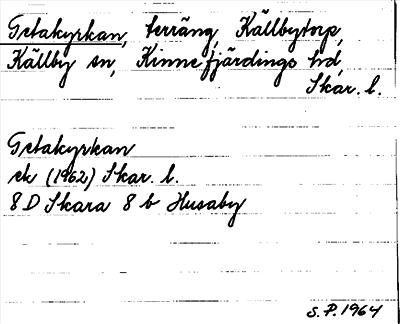 Getakyrkan, terräng, Källbytorp,
Källby sn, Kinnefjärdings hd,
Skar. l.
Getakyrkan
ek (1962) Skar. l.
8 D Skara 8 b Husaby
S.P. 1964